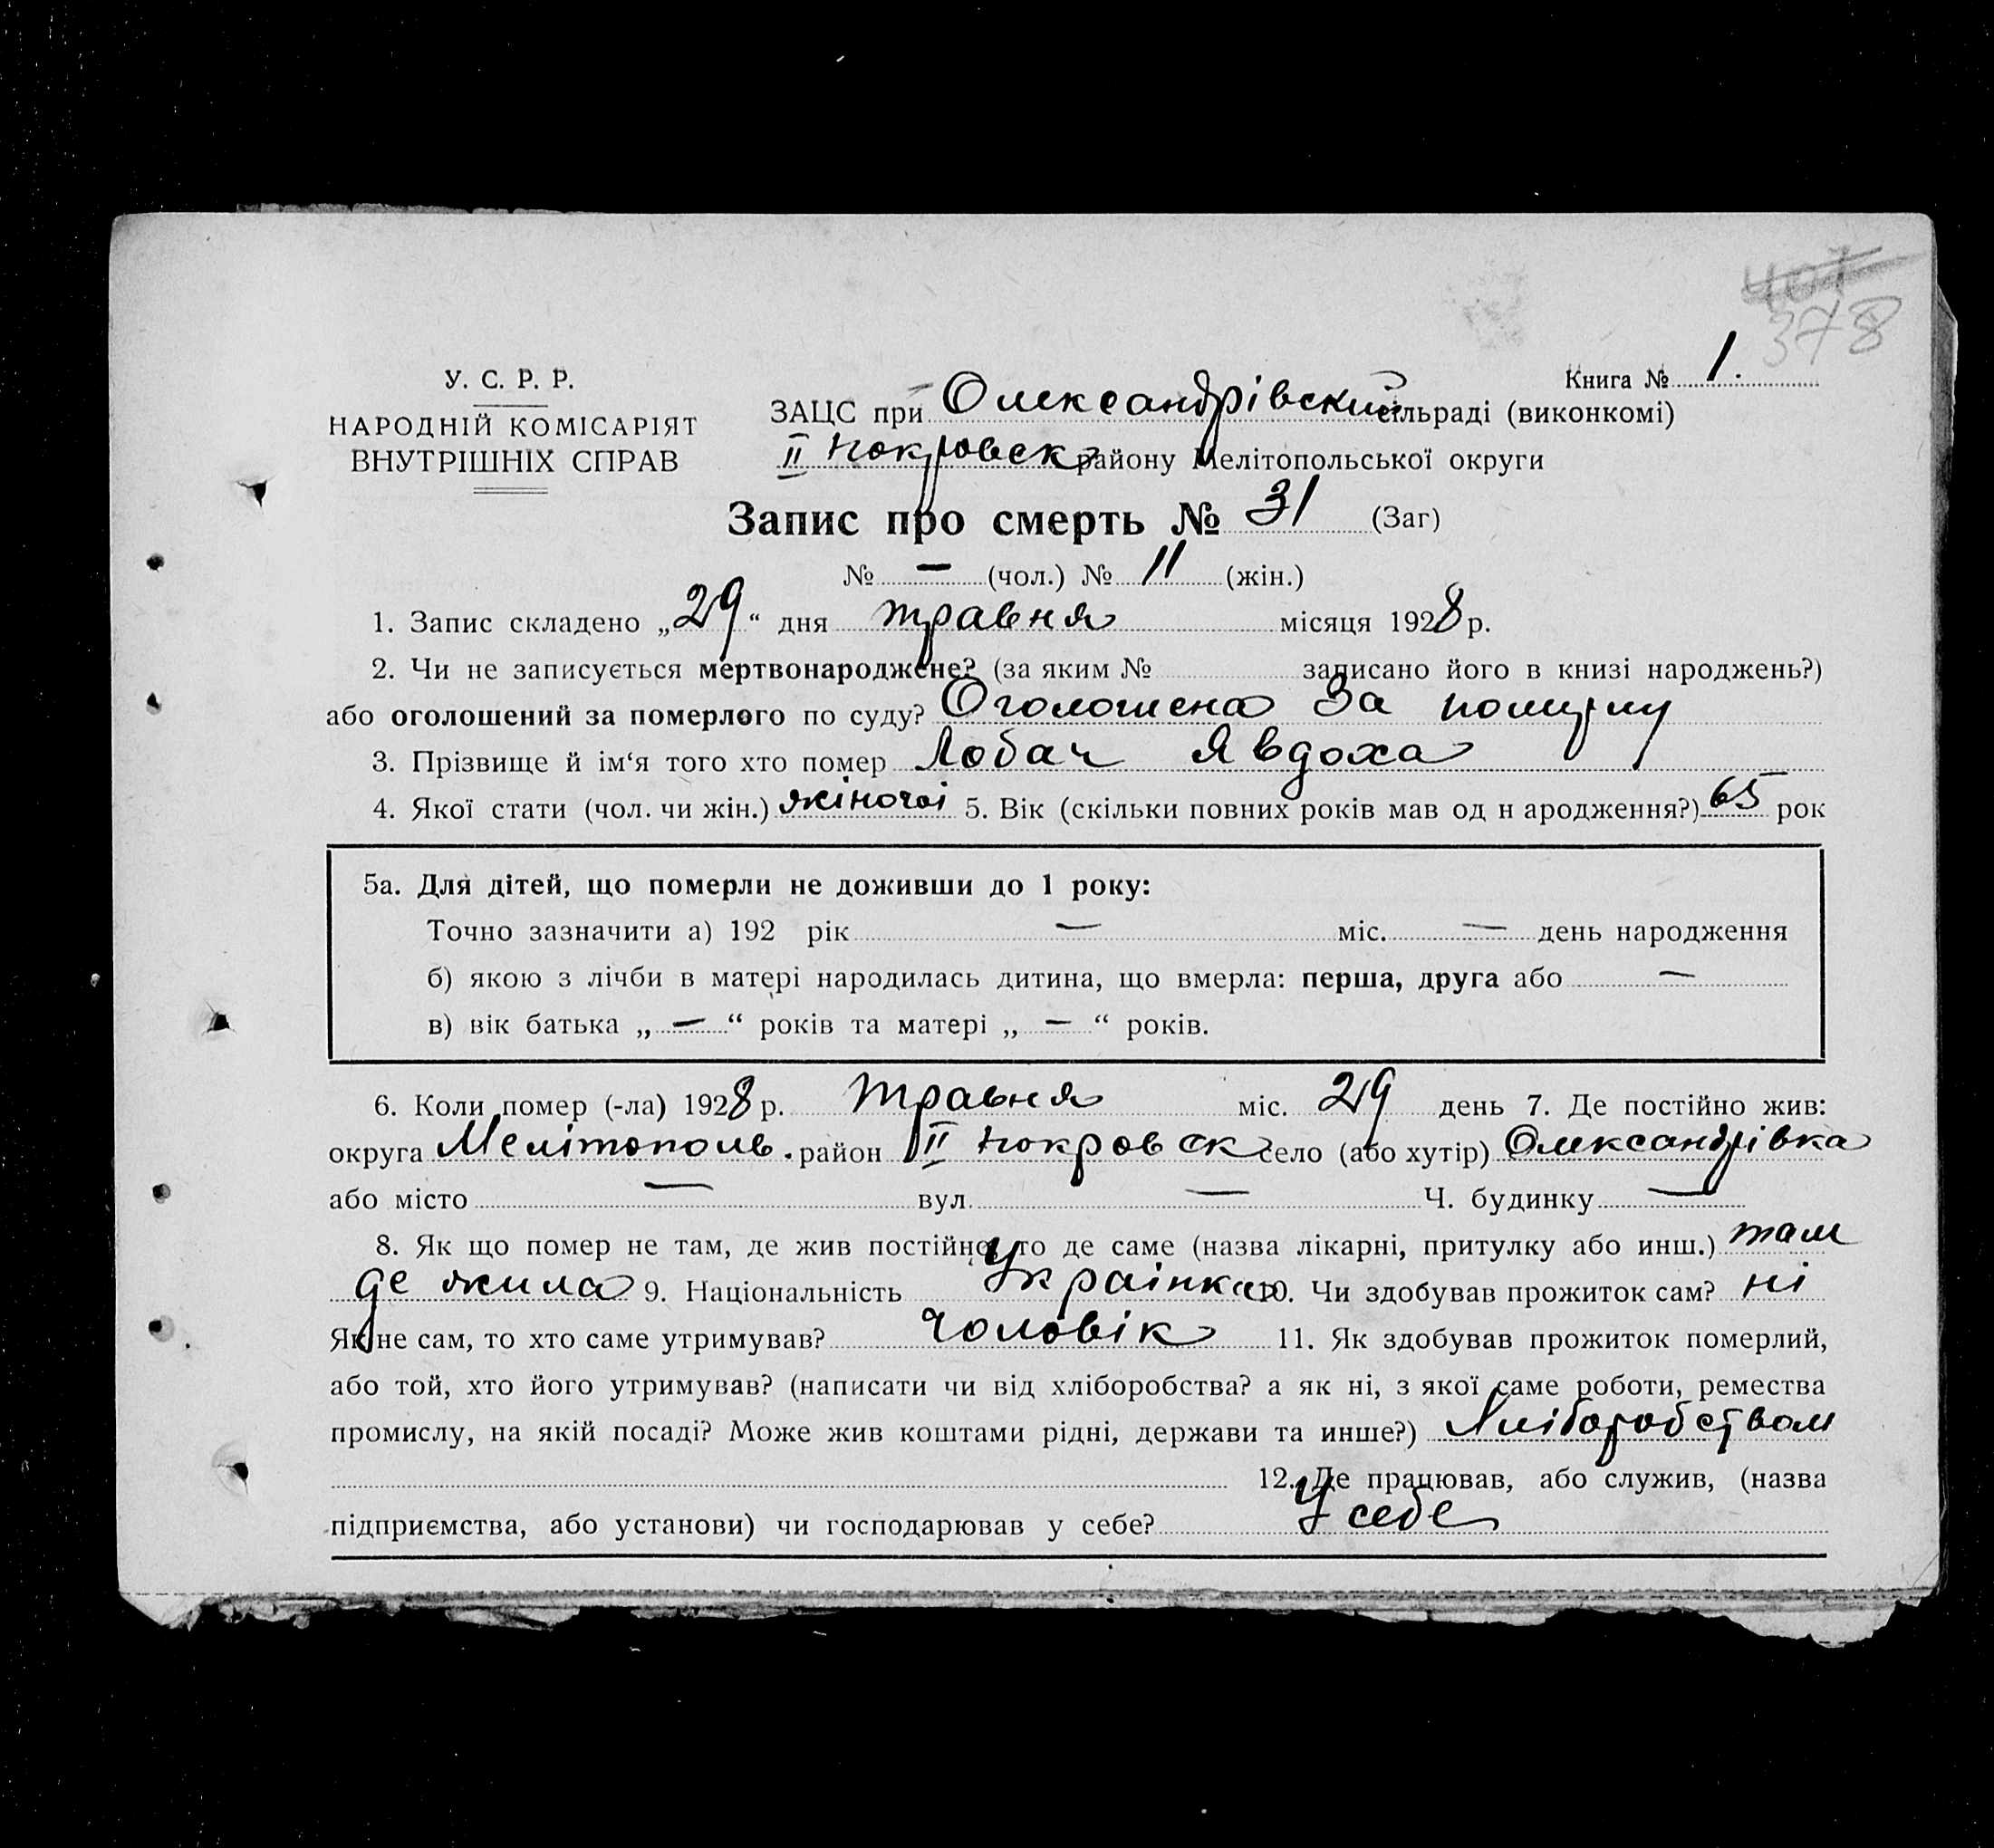 407
378
У. С. Р. Р.
НАРОДНІЙ КОМІСАРІЯТ
ВНУТРІШНІХ СПРАВ
Книга № 1.
ЗАЦС при Олександрівский сільраді (виконкомі)
II Покровск району Мелітопольської округи
Запис про смерть № 31 (Заг)
№ — (чол.) № 11 (жін.)
1. Запис складено „29“ дня травня місяця 1928 р.
2. Чи не записується мертвонароджене? (за яким № записано його в книзі народжень?)
або оголошений за померлого по суду? Оголошена за померлу
3. Прізвище й ім‘я того хто помер Лобач Явдоха
4. Якої стати (чол. чи жін.) жіночоі 5. Вік (скільки повних років мав од н ародження?) 65 рок
5а. Для дітей, що померли не доживши до 1 року:
Точно зазначити а) 192 рік — міс. — день народження
б) якою з лічби в матері народилась дитина, що вмерла: перша, друга або —
в) вік батька „ — “ років та матері „ — “ років.
6. Коли помер (-ла) 1928 р. травня міс. 29 день 7. Де постійно жив:
округа Мелітополь. район II Покровск село (або хутір) Олександрівка
або місто — вул. — Ч. будинку —
8. Як що помер не там, де жив постійно, то де саме (назва лікарні, притулку або инш.) там
де жила 9. Національність Украінка 10. Чи здобував прожиток сам? ні
Як не сам, то хто саме утримував? Чоловік 11. Як здобував прожиток померлий,
або той, хто його утримував? (написати чи від хліборобства? а як ні, з якої саме роботи, ремества
промислу, на якій посаді? Може жив коштами рідні, держави та инше?) Хліборобством
12. Де працював, або служив, (назва
підприємства, або установи) чи господарював у себе? У себе